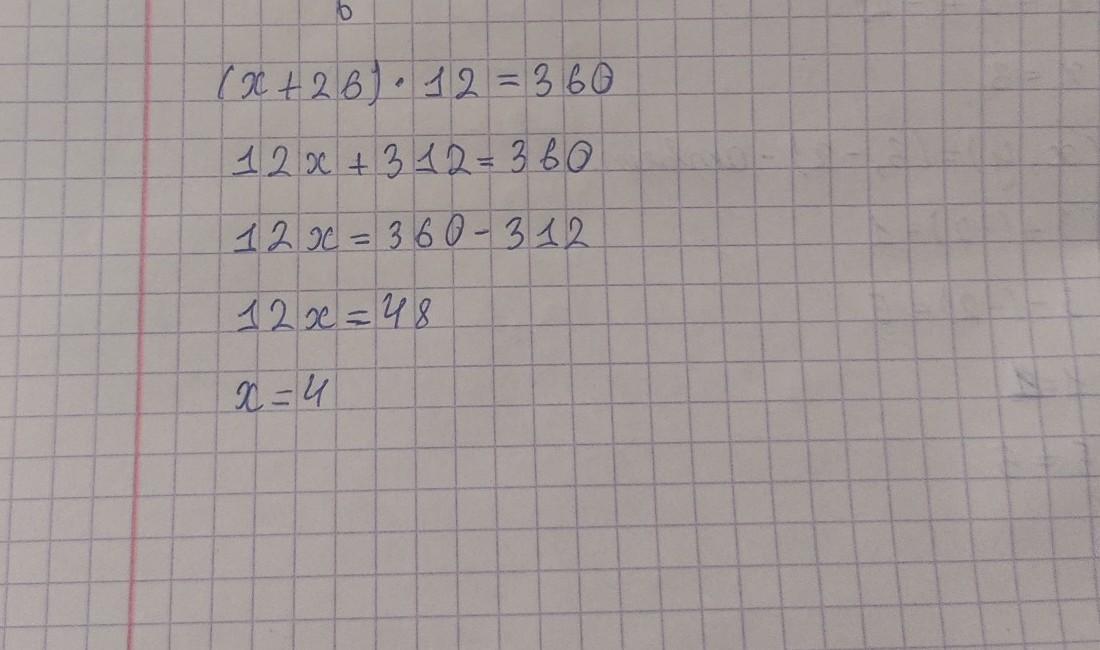 (x+26)·12=360
12x+312=360
12x=360-312
12x=48
x=4